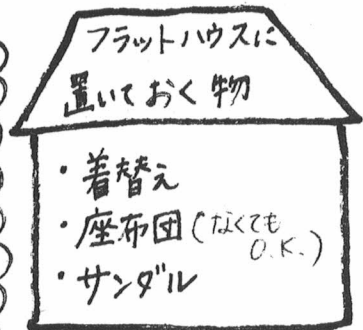 フラットハウスに
置いておく物
・着替え
・座布団(なくても
O.K.)
・サンダル